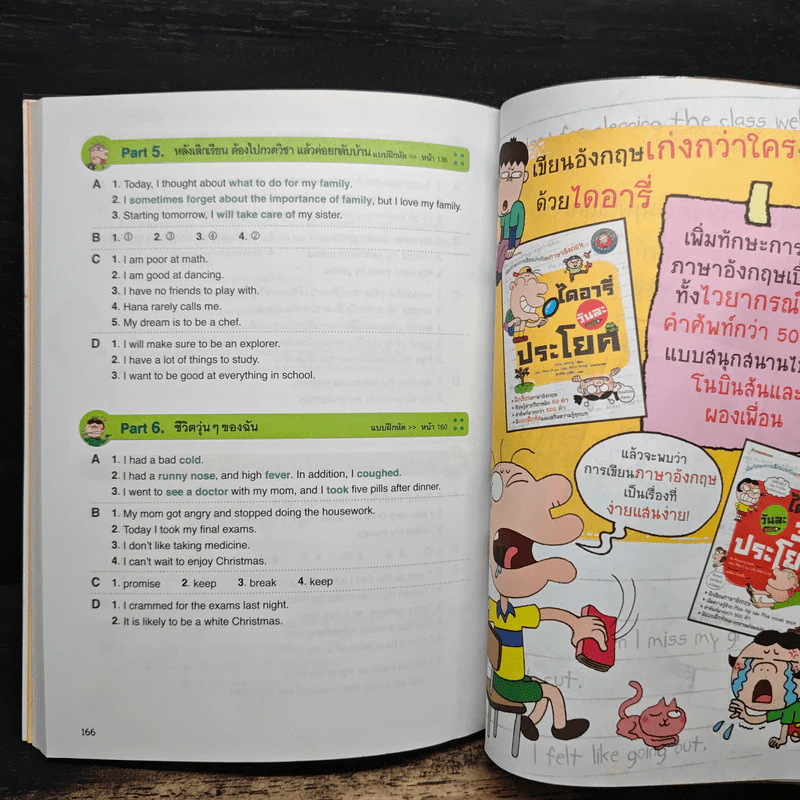 Part 5. หลังเลิกเรียน ต้องไปกวดวิชา แล้วค่อยกลับบ้าน แบบฝึกหัด >> หน้า 136
A 1. Today, I thought about what to do for my family.
2. I sometimes forget about the importance of family, but I love my family.
3. Starting tomorrow, I will take care of my sister.
B 1. ① 2. ③ 3. ④ 4. ②
C 1. I am poor at math.
2. I am good at dancing.
3. I have no friends to play with.
4. Hana rarely calls me.
5. My dream is to be a chef.
D 1. I will make sure to be an explorer.
2. I have a lot of things to study.
3. I want to be good at everything in school.
Part 6. ชีวิตวุ่น ๆ ของฉัน แบบฝึกหัด >> หน้า 160
A 1. I had a bad cold.
2. I had a runny nose, and high fever. In addition, I coughed.
3. I went to see a doctor with my mom, and I took five pills after dinner.
B 1. My mom got angry and stopped doing the housework.
2. Today I took my final exams.
3. I don't like taking medicine.
4. I can't wait to enjoy Christmas.
C 1. promise 2. keep 3. break 4. keep
D 1. I crammed for the exams last night.
2. It is likely to be a white Christmas.
166
the class
เขียนอังกฤษเก่งกว่าใคร
ด้วยไดอารี่
เพิ่มทักษะการ
ภาษาอังกฤษ
ทั้งไวยากรณ์
คำศัพท์กว่า 50
แบบสนุกสนาน
โนบินสันและ
ผองเพื่อน
ไดอารี่
วันละ
ประโยค
แล้วจะพบว่า
การเขียนภาษาอังกฤษ
เป็นเรื่องที่
ง่ายแสนง่าย!
วันละ
I miss my
I felt like going out.